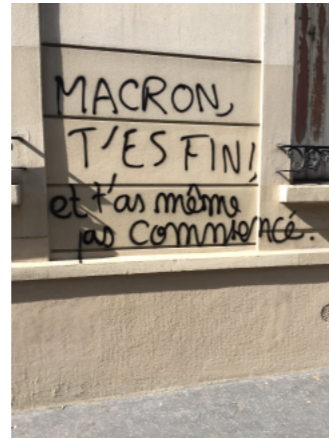 MACRON,
T'ES FINI,
et t'as même
pas commencé.